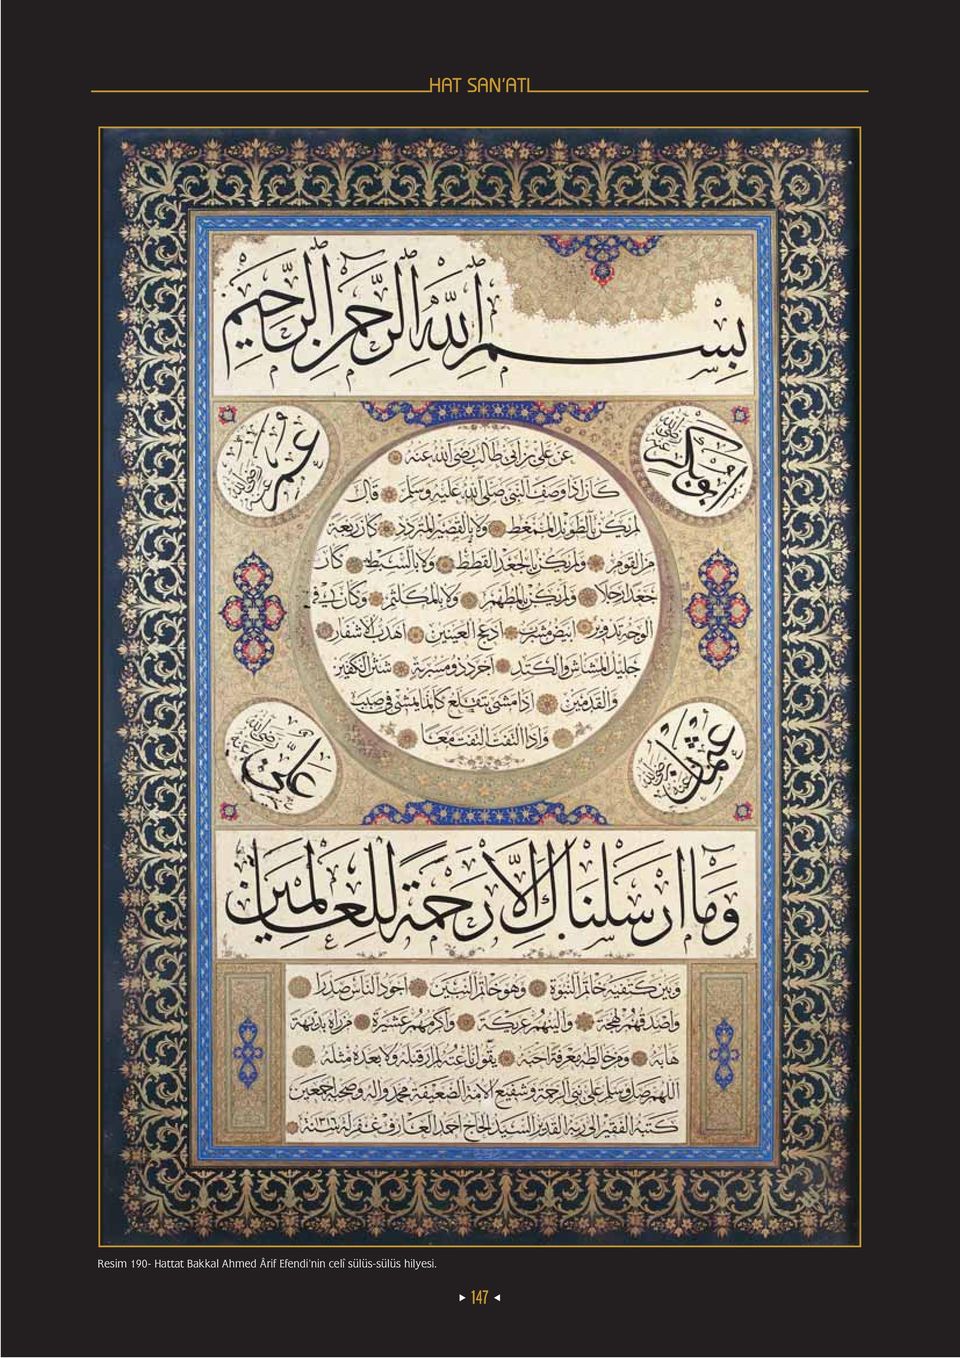 HAT SAN'ATI
بسم الله الرحمن الرحيم
ابوبكر رضي الله عنه
عمر رضي الله عنه
عن علي بن ابي طالب رضي الله عنه
كان اذا وصف النبي صلى الله عليه وسلم قال
لم يكن بالطويل الممغط ولا بالقصير المتردد كان ربعة
من القوم ولم يكن بالجعد القطط ولا بالسبط كان
جعدا رجلا ولم يكن بالمطهم ولا بالمكلثم وكان في
الوجه تدوير ابيض مشرب ادعج العينين اهدب الاشفار
جليل المشاش والكتد اجرد ذو مسربة شثن الكفين
والقدمين اذا مشى يتقلع كانما يمشي في صبب
واذا التفت التفت معا
عثمان رضي الله عنه
علي رضي الله عنه
وما ارسلناك الا رحمة للعالمين
وبين كتفيه خاتم النبوة وهو خاتم النبيين اجود الناس صدرا
واصدقهم لهجة والينهم عريكة واكرمهم عشيرة من راه بديهة
هابه ومن خالطه معرفة احبه يقول ناعته لم ار قبله ولا بعده مثله
اللهم صل وسلم على نبي الرحمة وشفيع الامة الضعيفة محمد واله وصحبه اجمعين
كتبه الفقير الى ربه القدير السيد الحاج احمد العارف غفر له سنة
Resim 190- Hattat Bakkal Ahmed Ârif Efendi'nin celî sülüs-sülüs hilyesi.
147